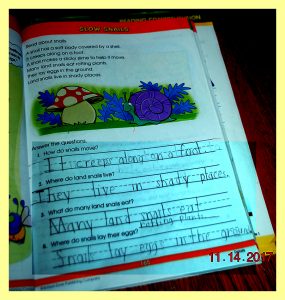 READING COMPREHENSION
SLOW SNAILS
Read about snails.
A snail has a soft body covered by a shell.
It creeps along on a foot.
A snail makes a sticky slime to help it move.
Many land snails eat rotting plants.
They lay eggs in the ground.
Land snails live in shady places.
Answer the questions.
1. How do snails move?
It creeps along on a foot.
2. Where do land snails live?
They live in shady places.
3. What do many land snails eat?
Many land snails eat
rotting plants.
Where do snails lay their eggs?
Snails lay eggs in the ground.
165
11.14.2017